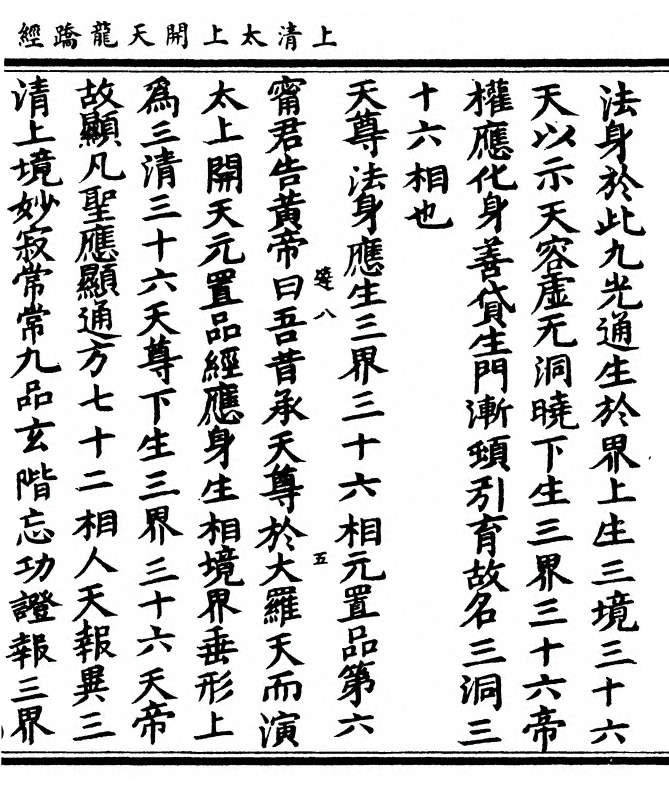 上清太上開天龍蹻經
法身於此九光通生於界上生三境三十六
天以示天容虛无洞曉下生三界三十六帝
權應化身善貸生門漸頓引育故名三洞三
十六相也
天尊法身應生三界三十六相元置品第六
甯君告黃帝曰吾昔承天尊於大羅天而演
太上開天元置品經應身生相境界垂形上
為三清三十六天尊下生三界三十六天帝
故顯凡聖應顯通方七十二相人天報異三
清上境妙寂常常九品玄階忘功證報三界
八
五